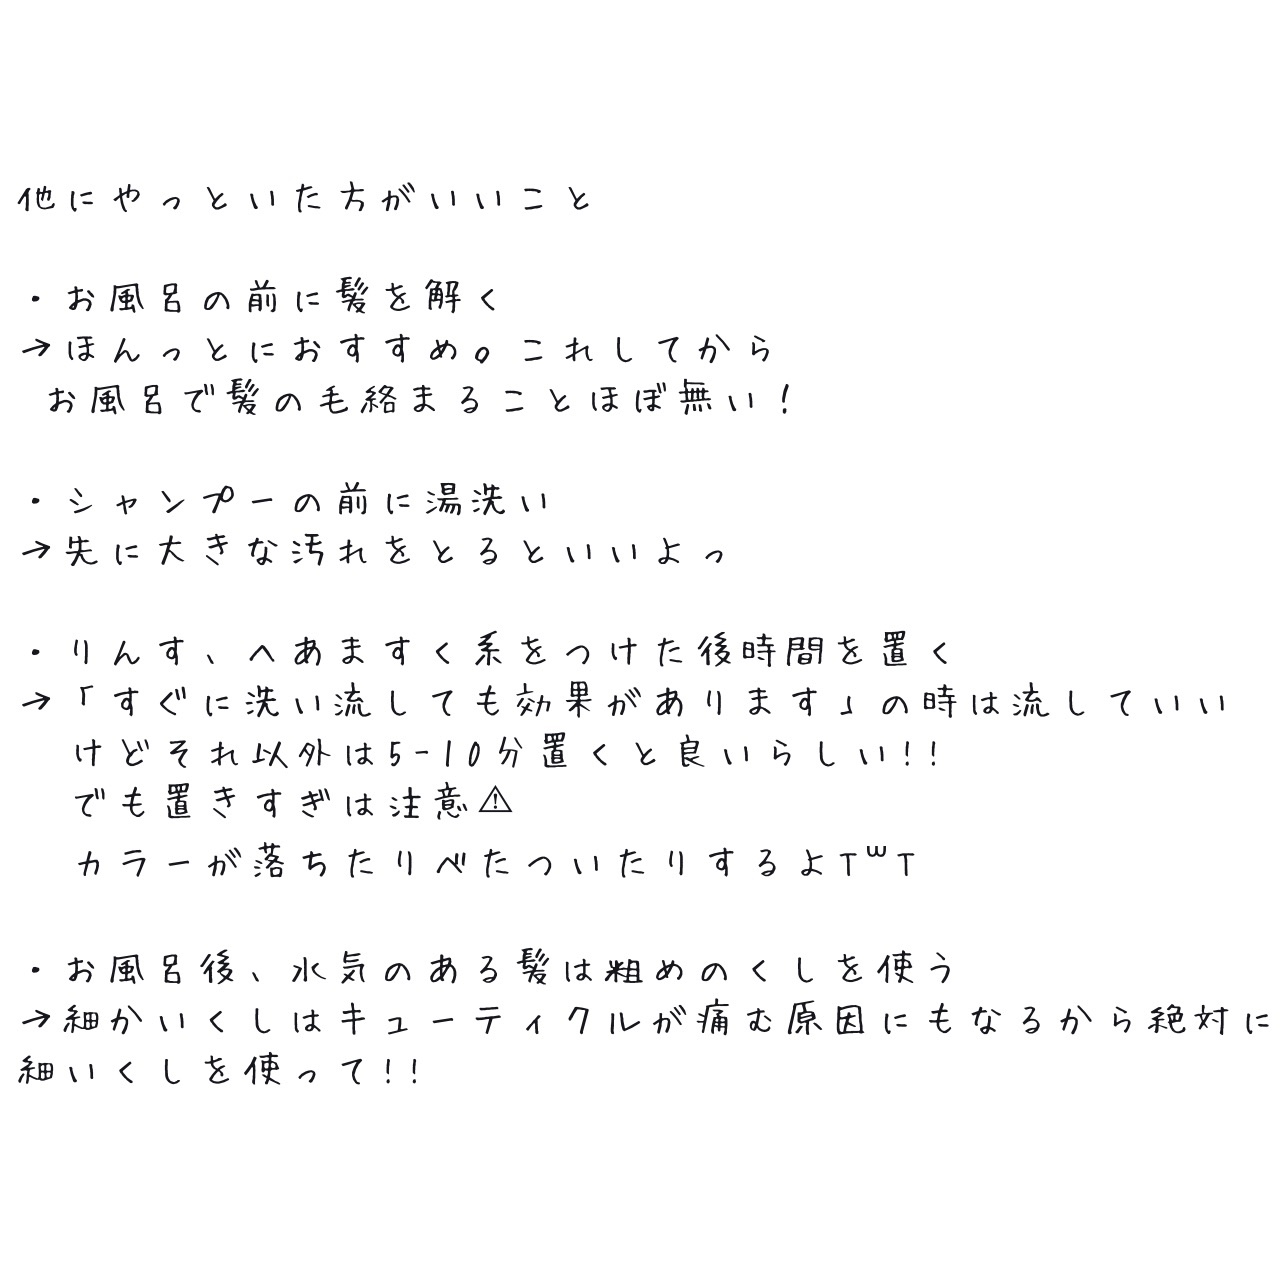 他にやっといた方がいいこと
・お風呂の前に髪を解く
→ほんっとにおすすめ。これしてから
お風呂で髪の毛絡まることほぼ無い！
・シャンプーの前に湯洗い
→先に大きな汚れをとるといいよっ
・りんす、へあますく系をつけた後時間を置く
→「すぐに洗い流しても効果があります」の時は流していい
けどそれ以外は5-10分置くと良いらしい!!
でも置きすぎは注意⚠
カラーが落ちたりべたついたりするよT꒳T
・お風呂後、水気のある髪は粗めのくしを使う
→細かいくしはキューティクルが痛む原因にもなるから絶対に
細いくしを使って!!